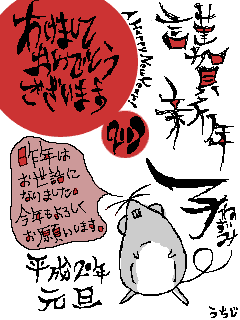 謹賀新年
あけまして
おめでとう
ございます
A Happy New Year!
昨年は
お世話に
なりました。
今年もよろしく
お願いします。
子
ねずみ
平成20年
元旦
うちじ